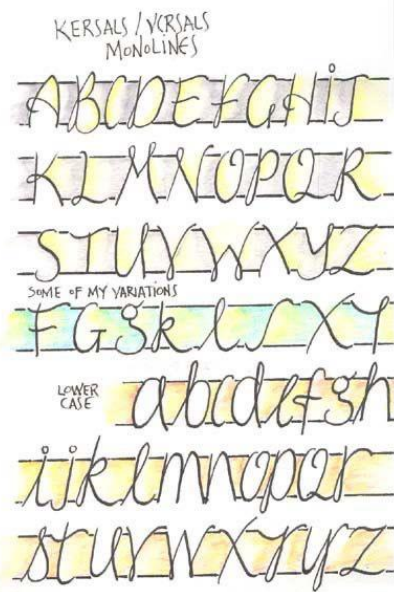 KERSALS / VERSALS
MONOLINES
ABCDEFGHiJ
KLMNOPQR
STUVWXYZ
SOME OF MY VARIATIONS
FGgklSXY
LOWER
CASE
abcdefgh
ijklmnopqr
stuvwxyyz